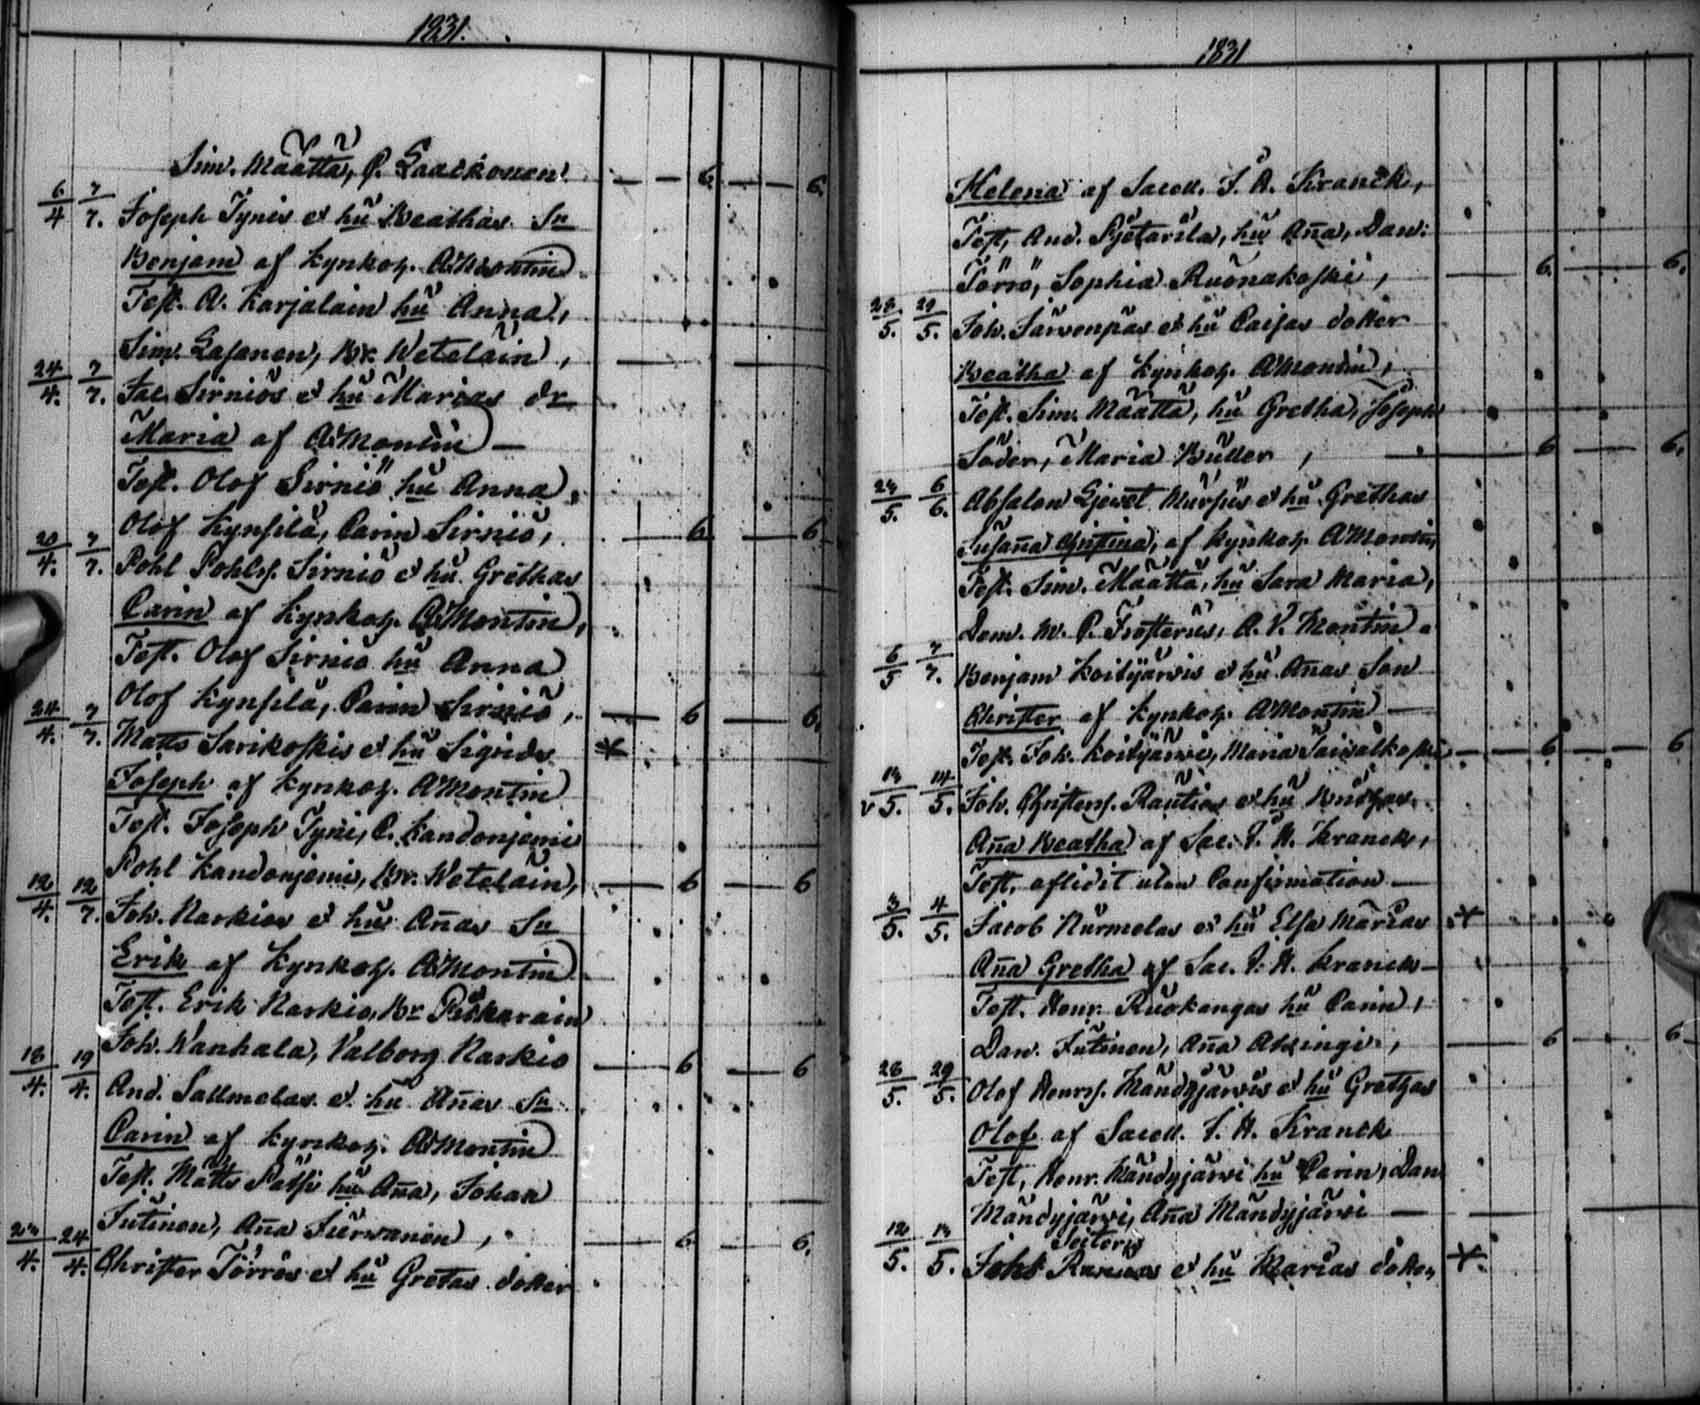 1831.
Sim. Määttä, C. Laatkonen. — — 6. — — 6.
6/4 7/7. Joseph Tynis et hu Beathas Sn
Benjam af Kyrkoh. A. Montin
Test. A. Karjalain hu Anna,
Sim. Lasanen, Br. Wetelain,
24/4. 7/7. Jac. Sirniös et hu Marias dr
Maria af A. Montin —
Test. Olof Sirniö hu Anna,
Olof Kynsilä, Carin Sirniö, — 6 — 6
20/4. 7/7. Pohl Pohls. Sirniö et hu Grethas
Carin af Kyrkoh. A. Montin,
Test. Olof Sirniö hu Anna
Olof Kynsilä, Carin Sirniö, — 6 — 6.
24/4. 7/7. Matts Sarikoskis et hu Sigrids
Joseph af Kyrkoh. A. Montin
Test. Joseph Tyni, C. Kandonjemi
Pohl Kandonjemi, Br. Wetelain, — 6 — 6
12/4. 12/7. Joh. Narkios et hu Añas Sn
Erik af Kyrkoh. A. Montin
Test. Erik Narkio, Br Piskarain
Joh. Wanhala, Valborg Narkio — 6 — 6
18/4. 19/4. And. Sallmelas et hu Añas Sn
Carin af Kyrkoh. A. Montin
Test. Matts Pätsi hu Aña, Johan
Jutinen, Aña Tierwanen, — 6. — 6.
23/4. 24/4. Christer Törrös et hu Gretas dotter
1831
Helena af Sacell. J. H. Kranck,
Test. And. Pjetarila, hu Aña, Dan.
Törrö, Sophia Ruonakoski, — 6. — 6.
28/5. 29/5. Joh. Järvenpäs et hu Caisas dotter
Beatha af Kyrkoh. A. Montin,
Test. Sim. Määttä, hu Gretha, Joseph
Söder, Maria Buller, — 6 — 6.
24/5. 6/6. Absalon Ljewet Mursus et hu Grethas
Susaña Christina, af Kyrkoh. A. Montin,
Test. Sim. Määttä, hu Sara Maria,
Dom. M. C. Frosterus, A. V. Montin.
6/5 7/7. Benjam Koityärvis et hu Añas Son
Christer af Kyrkoh. A. Montin —
Test. Joh. Koityärvi, Maria Taivalkoski — 6 — 6
13/5. 14/5. Joh. Christers. Rautios et hu
Aña Beatha af Sac. J. H. Kranck,
Test. aflidit utan Confirmation —
3/5. 4/5. Jacob Nurmelas et hu Elsa Marias
Aña Gretha af Sac. J. H. Kranck —
Test. Henr. Ruokangas hu Carin,
Dan. Jutinen, Aña Alsingi, — 6 — 6
28/5. 29/5. Olof Henrs. Mändyjärvis et hu Grethas
Olof af Sacell. J. H. Kranck
Test. Henr. Mändyjärvi hu Carin, Dan
Mändyjärvi, Aña Mändyjärvi —
12/5. 13/5. Joh. et hu Marias dotter